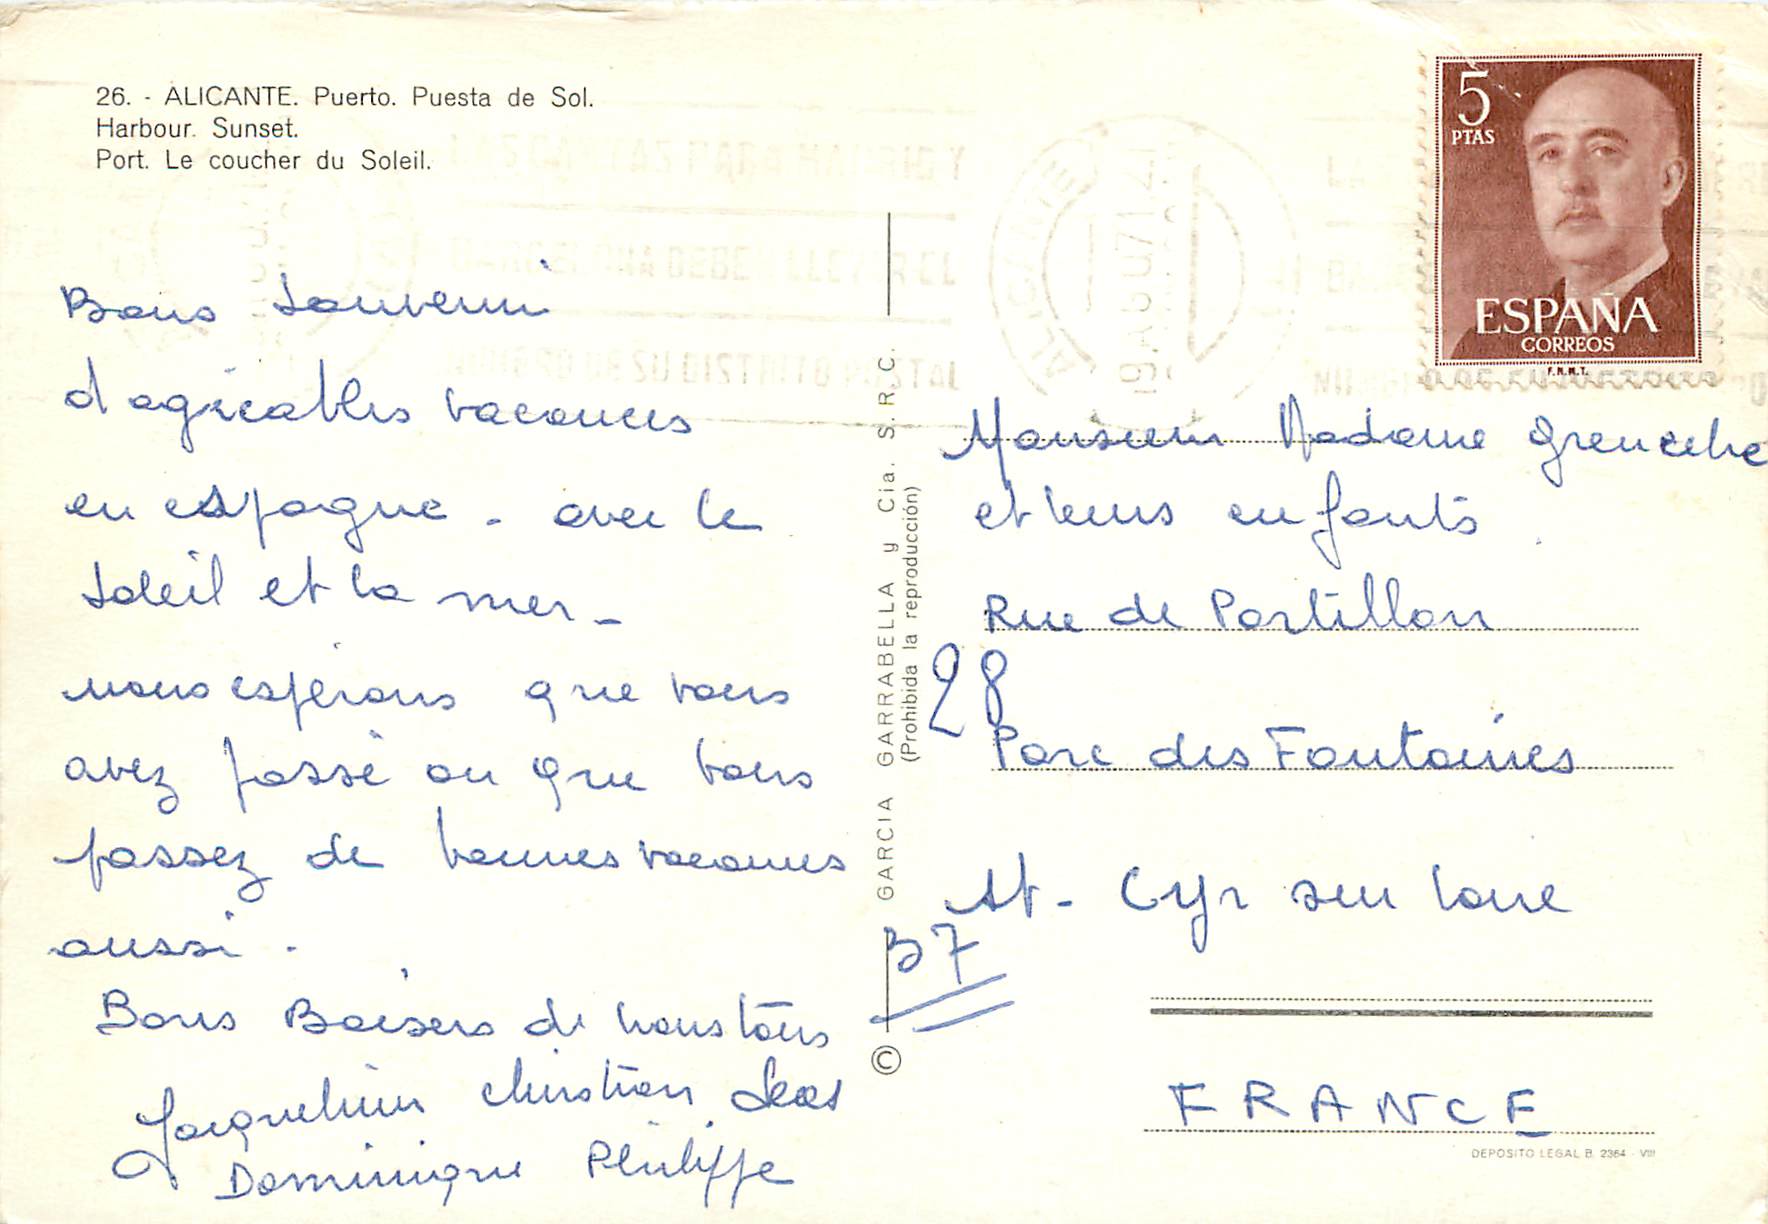 26. - ALICANTE. Puerto. Puesta de Sol.
Harbour. Sunset.
Port. Le coucher du Soleil.
5
PTAS
ESPAÑA
CORREOS
F.N.M.T.
ALICANTE
BARCELONA DEBEN LLEVAR EL
NUMERO DE SU DISTRITO POSTAL
Bons Souvenir
d'agréables vacances
en espagne - avec le
soleil et la mer -
nous espérons que vous
avez passé ou que vous
passez de bonnes vacances
aussi.
Bons Baisers de nous tous
Jacqueline Christian
Dominique Philippe
GARCIA GARRABELLA y Cia. S.R.C.
(Prohibida la reproducción)
©
Monsieur Madame
et leurs enfants
Rue de Portillon
28
Parc des Fontaines
St - Cyr sur Loire
37
FRANCE
DEPOSITO LEGAL B. 2364 - VIII